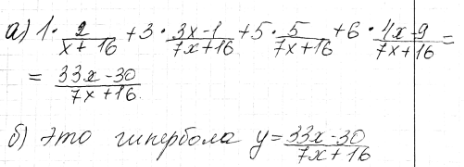 а) 1 · 2/(x + 16) + 3 · (3x - 1)/(7x + 16) + 5 · 5/(7x + 16) + 6 · (4x - 9)/(7x + 16) =
= (33x - 30)/(7x + 16)
б) это гипербола y = (33x - 30)/(7x + 16)